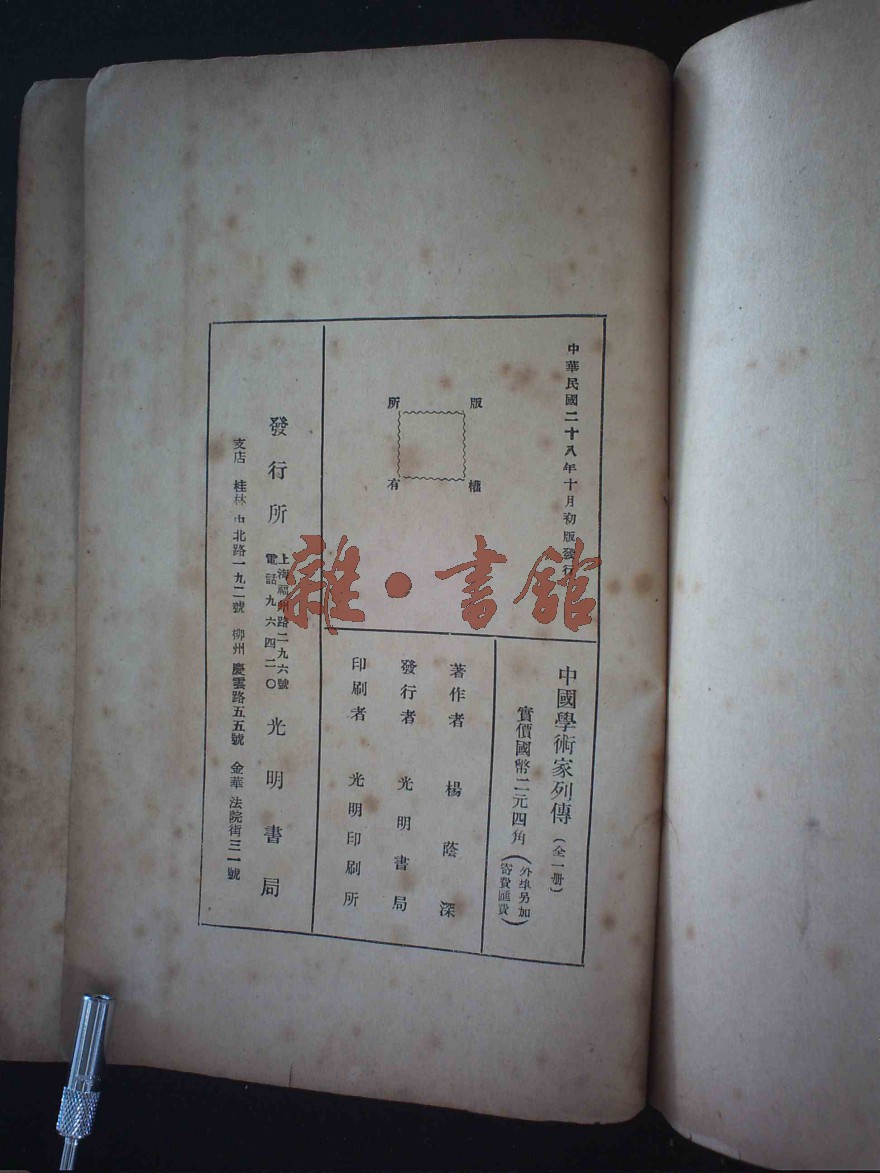 中華民國二十八年十月初版發行
版權所有
中國學術家列傳(全一册)
實價國幣二元四角(外埠另加寄費匯費)
著作者 楊蔭深
發行者 光明書局
印刷者 光明印刷所
發行所 上海福州路二九六號 電話九六四二〇 光明書局
支店 桂林中北路一九二號 柳州慶雲路五五號 金華法院街三一號
雜·書館